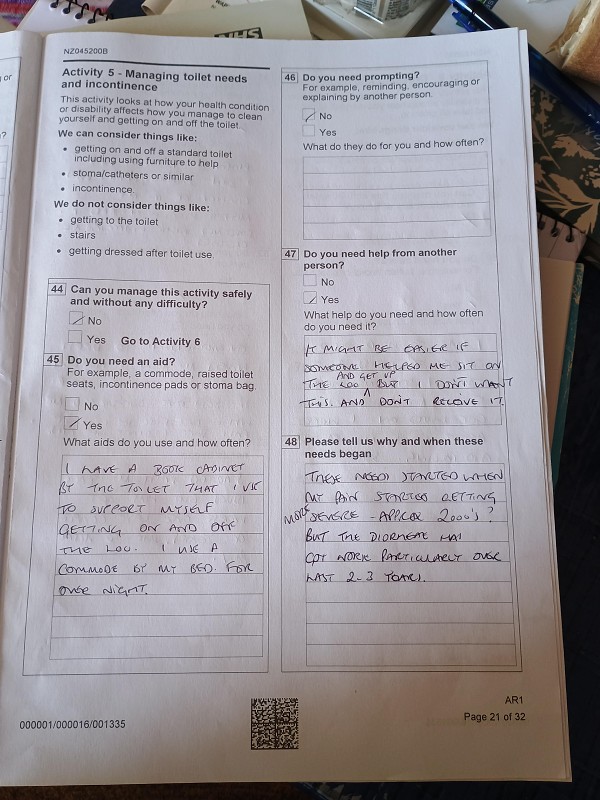 NHS
NZ045200B
Activity 5 - Managing toilet needs
and incontinence
This activity looks at how your health condition
or disability affects how you manage to clean
yourself and getting on and off the toilet.
We can consider things like:
• getting on and off a standard toilet
including using furniture to help
• stoma/catheters or similar
• incontinence.
We do not consider things like:
• getting to the toilet
• stairs
• getting dressed after toilet use.
44 Can you manage this activity safely
and without any difficulty?
No
Yes Go to Activity 6
45 Do you need an aid?
For example, a commode, raised toilet
seats, incontinence pads or stoma bag.
No
Yes
What aids do you use and how often?
I HAVE A BOOK CABINET
BY THE TOILET THAT I USE
TO SUPPORT MYSELF
GETTING ON AND OFF
THE LOO. I USE A
COMMODE BY MY BED. FOR
OVER NIGHT.
46 Do you need prompting?
For example, reminding, encouraging or
explaining by another person.
No
Yes
What do they do for you and how often?
47 Do you need help from another
person?
No
Yes
What help do you need and how often
do you need it?
IT MIGHT BE EASIER IF
SOMEONE HELPED ME SIT ON
AND GET UP
THE LOO BUT I DON'T WANT
THIS. AND DON'T RECEIVE IT.
48 Please tell us why and when these
needs began
THESE NEEDS STARTED WHEN
MY PAIN STARTED GETTING
MORE SEVERE - APPROX 2000'S?
BUT THE DIORHEAE HAS
GOT WORK PARTICULARLY OVER
LAST 2-3 YEARS.
000001/000016/001335
AR1
Page 21 of 32